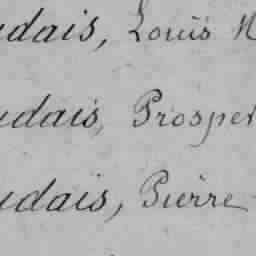 udais, Louis
udais, Prosper
udais, Pierre